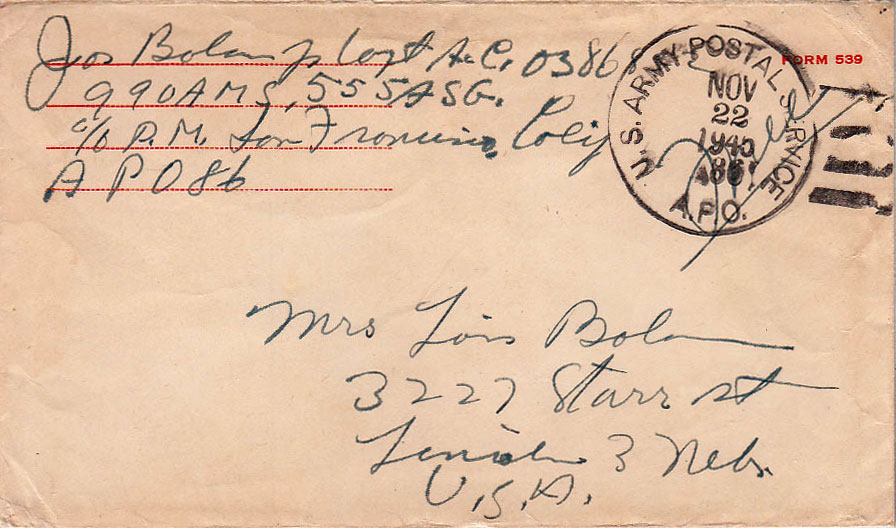 Jos Bolan Jr Capt A.C. 03868
990 AMS, 555 ASG.
c/o P.M. San Francisco, Calif
APO 86
U.S. ARMY POSTAL SERVICE
NOV
22
1945
86
A.P.O.
FORM 539
Mrs Lois Bolan
3227 Starr st
Lincoln 3 Nebr.
U.S.A.